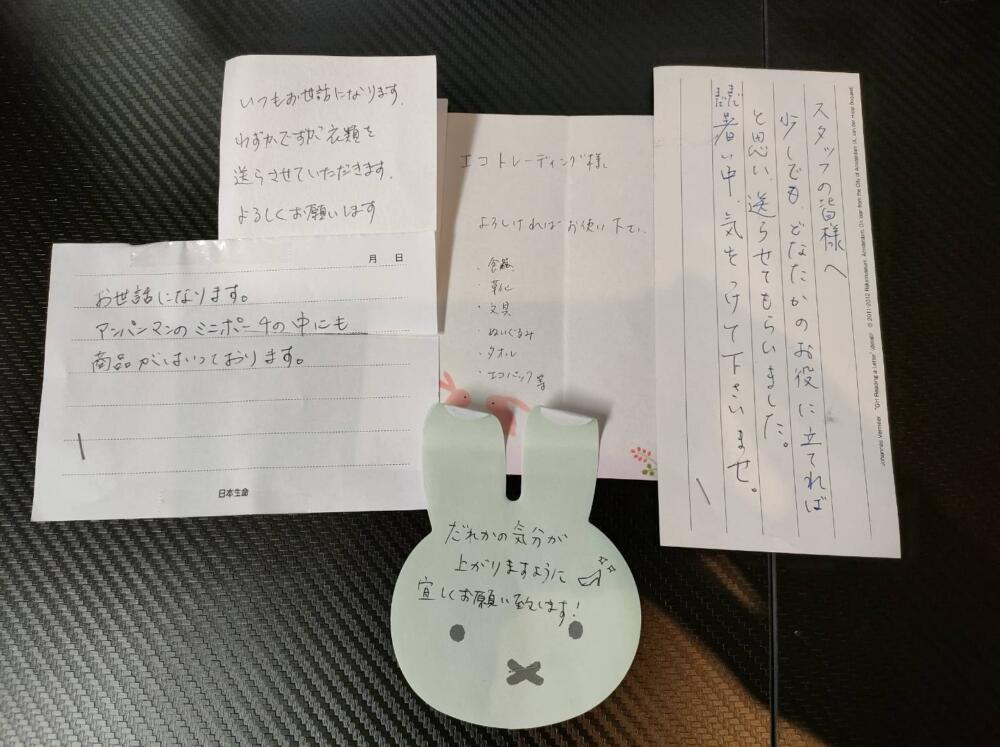 いつもお世話になります.
わずかですが衣類を
送らさせていただきます.
よろしくお願いします
月 日
お世話になります。
アンパンマンのミニポーチの中にも
商品がはいっております。
日本生命
エコトレーディング様
よろしければお使い下さい、
・食器
・文具
・ぬいぐるみ
・タオル
・エコバッグ等
スタッフの皆様へ
少しでも、どなたかのお役に立てれば
と思い、送らせてもらいました。
暑い中、気をつけて下さいませ。
Johannes Vermeer "Girl Reading a Letter" (detail) © 2011-2012 Rijksmuseum, Amsterdam. On loan from the City of Amsterdam (A. van der Hoop Bequest)
だれかの気分が
上がりますように
宜しくお願い致します!